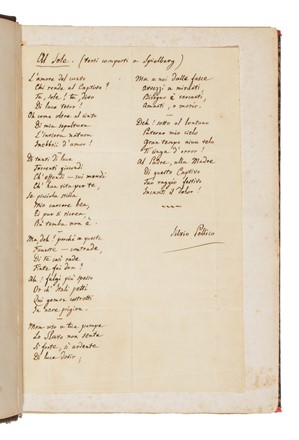 Al Sole. (versi composti a Spielberg)
L'amore del canto
Chi rende al Captivo?
Tu, sole! tu, divo
Di luce tesor!
Oh come oltre al
Di mia sepoltura
L'intera natura
Inebbii d'amor!
Di tanti di luce
Torrenti giocondi
Ch'effondi sui mondi
Ch' han vita per te,
Se piccola stilla
Mio carcere bea,
Ei pur si ricrea,
Più tomba non è.
Ma, deh! perchè a queste
Funeste contrade,
Di te così rade
Fiate fai don?
Ah! fulgi più spesso
Or di Itali petti
Qui gemon costretti
In nera prigion.
Men uso a tue pompe
Lo Slavo non senta
Sì forte, sì ardente
Di luce desir;
Ma a noi dalle fasce
Avvezzi a mirarti
Bisogno è cercarti,
Amarti, o morir.
Deh! sotto al lontano
Paterno mio cielo
Gran tempo niun velo
Ti cinga d'orror!
Al Padre, alla Madre
Di questo Captivo
Tuo raggio festivo
Incanti il dolor!
Silvio Pellico